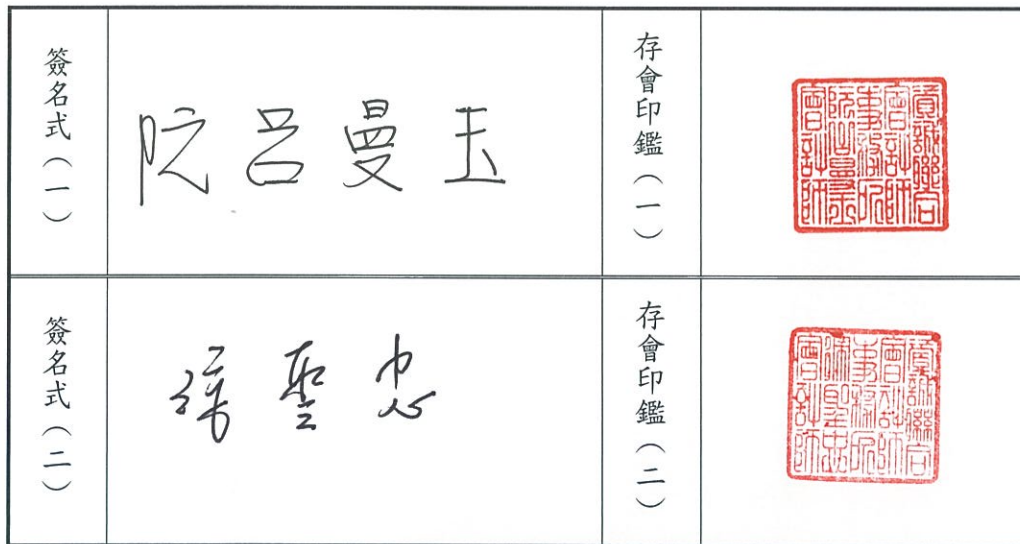 簽名式(一)
阮呂曼玉
存會印鑑(一)
資誠聯合
會計師
事務所
阮呂曼玉
會計師
簽名式(二)
徐聖忠
存會印鑑(二)
資誠聯合
會計師
事務所
徐聖忠
會計師